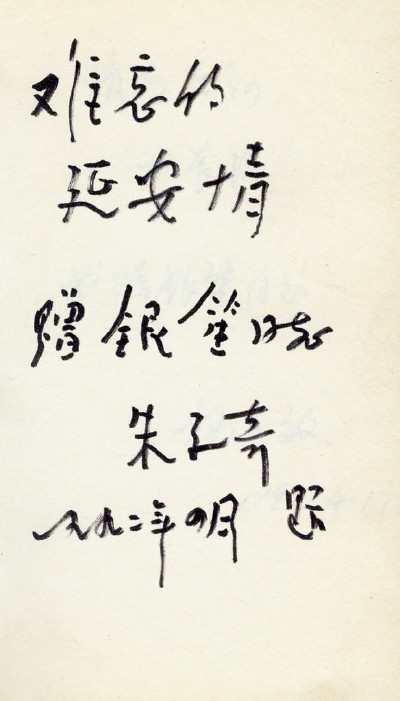 难忘的
延安情
赠銀笙同志
朱子奇
一九九二年四月 题